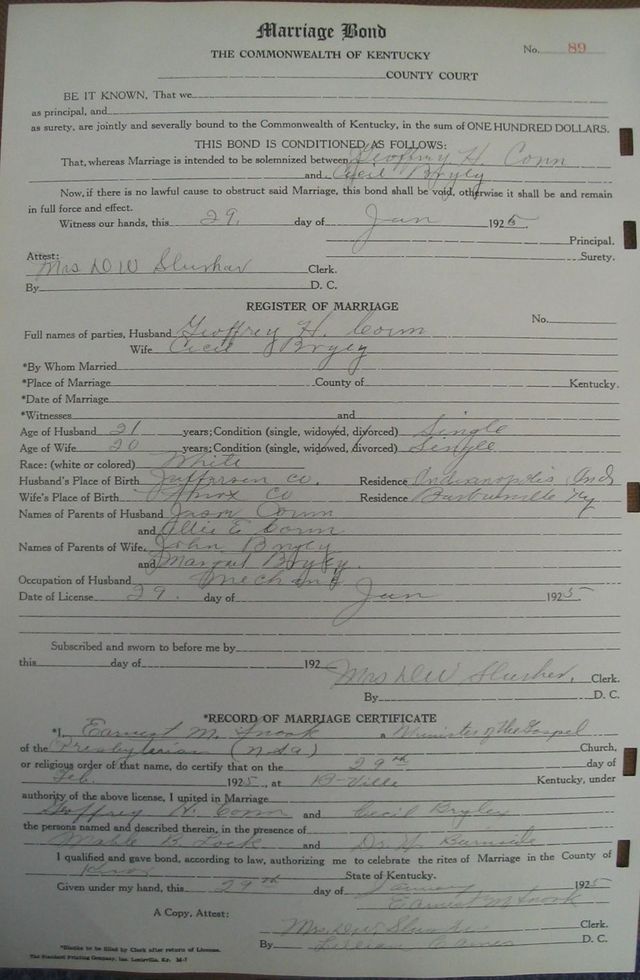 Marriage Bond
No. 89
THE COMMONWEALTH OF KENTUCKY
COUNTY COURT
BE IT KNOWN, That we
as principal, and
as surety, are jointly and severally bound to the Commonwealth of Kentucky, in the sum of ONE HUNDRED DOLLARS.
THIS BOND IS CONDITIONED AS FOLLOWS:
That, whereas Marriage is intended to be solemnized between Geoffrey H. Conn
and Cecil Bryley
Now, if there is no lawful cause to obstruct said Marriage, this bond shall be void, otherwise it shall be and remain
in full force and effect.
Witness our hands, this 29. day of Jan 1925.
Principal.
Surety.
Attest:
Mrs D W Slusher Clerk.
By D. C.
REGISTER OF MARRIAGE
No.
Full names of parties, Husband Geoffrey H. Conn
Wife Cecil Bryley
*By Whom Married
*Place of Marriage County of Kentucky.
*Date of Marriage
*Witnesses and
Age of Husband 21 years; Condition (single, widowed, divorced) Single
Age of Wife 20 years; Condition (single, widowed, divorced) Single
Race: (white or colored) White
Husband's Place of Birth Jefferson Co. Residence Indianapolis, Ind
Wife's Place of Birth Knox Co Residence Barbourville Ky
Names of Parents of Husband Jason Conn
and Allie E Conn
Names of Parents of Wife, John Bryley
and Margaret Bryley.
Occupation of Husband Mechanic
Date of License 29. day of Jan 1925
Subscribed and sworn to before me by
this day of 192
Mrs D W Slusher, Clerk.
By D. C.
*RECORD OF MARRIAGE CERTIFICATE
*I, Earnest M. Snook a Minister of the Gospel
of the Presbyterian (USA) Church,
or religious order of that name, do certify that on the 29th day of
Feb. 1925, at B-Ville Kentucky, under
authority of the above license, I united in Marriage
Geoffrey H. Conn and Cecil Bryley
the persons named and described therein, in the presence of
B. Lock and Burnside
I qualified and gave bond, according to law, authorizing me to celebrate the rites of Marriage in the County of
Knox State of Kentucky.
Given under my hand, this 29th day of January 1925
Earnest M Snook
A Copy, Attest:
Mrs D W Slusher Clerk.
By Lillian D. C.
*Blanks to be filled by Clerk after return of License.
The Standard Printing Company, Inc. Louisville, Ky. M-7